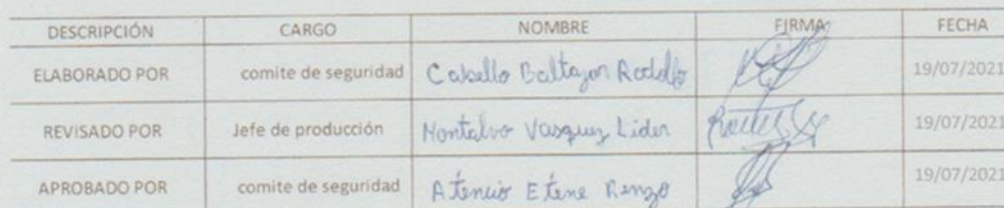 DESCRIPCIÓN CARGO NOMBRE FIRMA FECHA
ELABORADO POR comite de seguridad Cabello Baltazar Rodolfo 19/07/2021
REVISADO POR Jefe de producción Montalvo Vasquez Lider 19/07/2021
APROBADO POR comite de seguridad Atencio Etene Renzo 19/07/2021